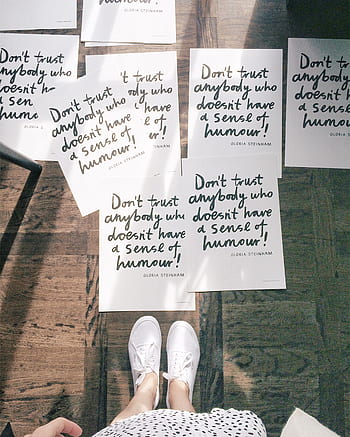 GLORIA STEINHAM
Don't trust
anybody who
doesn't
a sen
Don't trust
who
have
Don't trust
anybody who
doesn't have
a sense of
humour!
GLORIA STEINHAM
Don't trust
anybody who
doesn't have
a sense of
humour!
GLORIA STEINHAM
Don't trust
anybody
doesn't have
a sense of
humour!
Don't trust
anybody who
doesn't have
a sense of
humour!
GLORIA STEINHAM
Don't trust
anybody who
doesn't have
a sense of
humour!
GLORIA STEINHAM